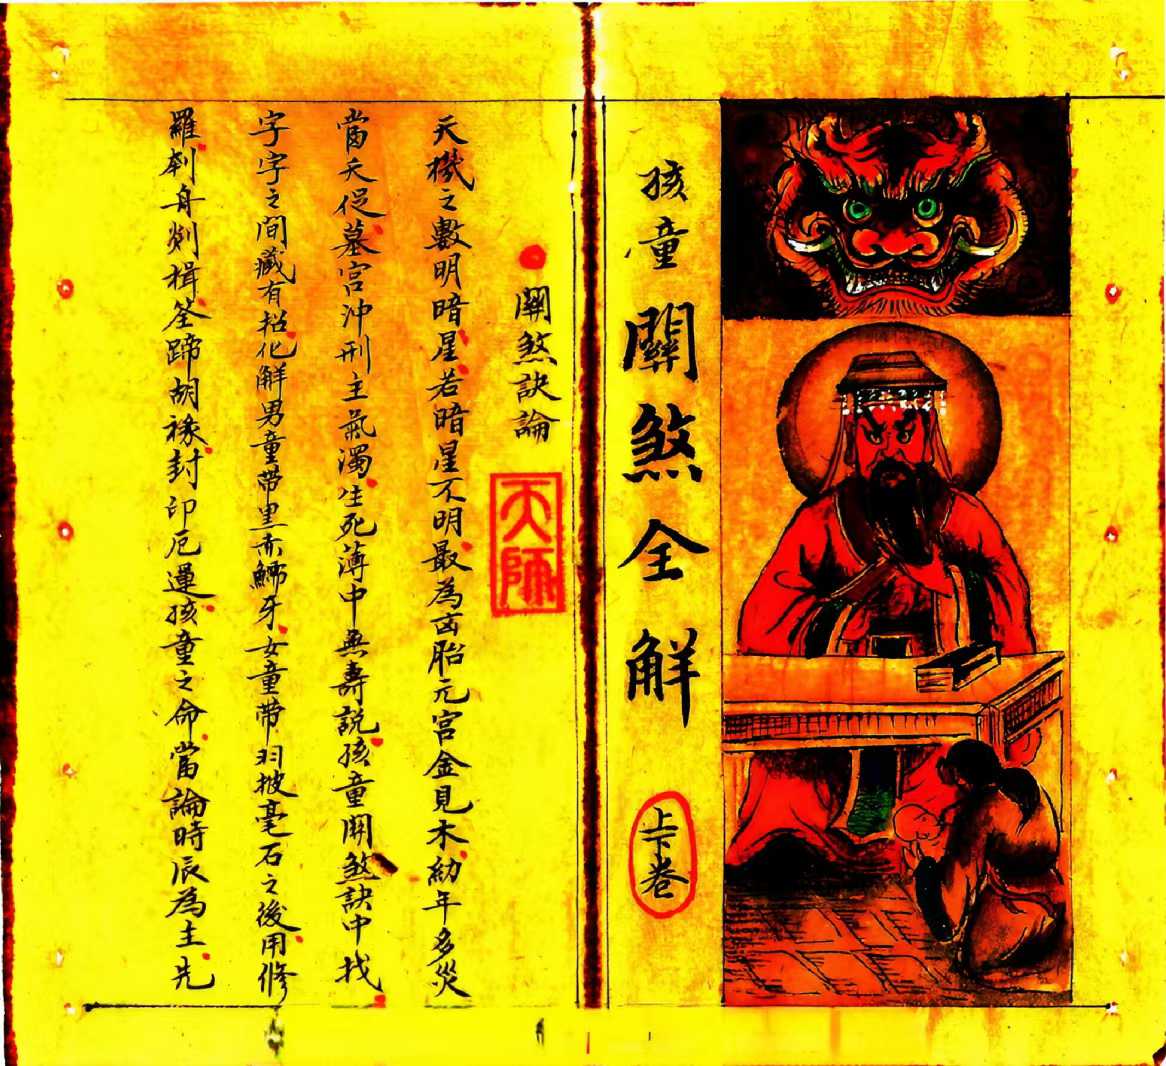 孩童關煞全解
上下卷
關煞訣論
天師
天機之數明暗星若暗星不明最為凶胎元宮金見木幼年多災
當天從墓宮沖刑主氣濁生死薄中無壽説孩童關煞訣中找
字字之間藏有招化解男童帶黑赤鯞牙女童带羽披毫石之後用修
羅刹舟剡楫筌蹄胡祿封印厄運孩童之命當論時辰為主先